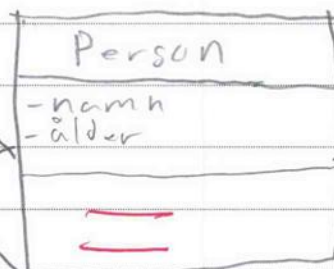 Person
-namn
-ålder